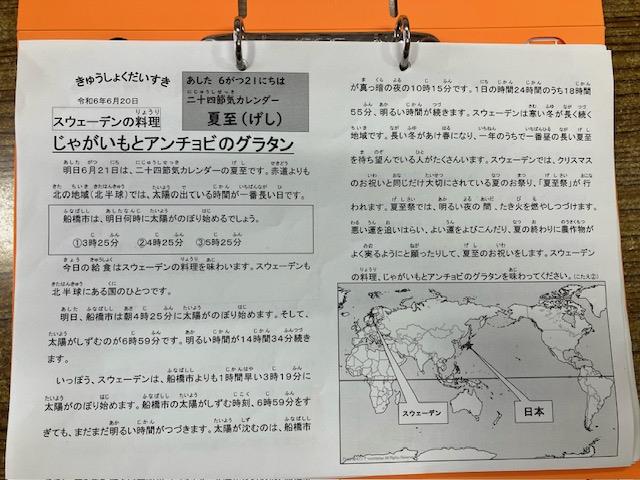 きゅうしょくだいすき
令和6年6月20日
スウェーデンの料理
あした 6がつ21にちは
二十四節気カレンダー
夏至（げし）
じゃがいもとアンチョビのグラタン
明日6月21日は、二十四節気カレンダーの夏至です。赤道よりも
北の地域（北半球）では、太陽の出ている時間が一番長い日です。
船橋市は、明日何時に太陽がのぼり始めるでしょう。
①3時25分　②4時25分　③5時25分
今日の給食はスウェーデンの料理を味わいます。スウェーデンも
北半球にある国のひとつです。
明日、船橋市は朝4時25分に太陽がのぼり始めます。そして、
太陽がしずむのが6時59分です。明るい時間が14時間34分続き
ます。
いっぽう、スウェーデンは、船橋市よりも1時間早い3時19分に
太陽がのぼり始めます。船橋市の太陽がしずむ時刻、6時59分をす
ぎても、まだまだ明るい時間がつづきます。太陽が沈むのは、船橋市
が真っ暗の夜の10時15分です。1日の時間24時間のうち18時間
55分、明るい時間が続きます。スウェーデンは寒い冬が長く続く
地域です。長い冬があけ春になり、一年のうちで一番昼の長い夏至
を待ち望んでいる人がたくさんいます。スウェーデンでは、クリスマス
のお祝いと同じだけ大切にされている夏のお祭り、「夏至祭」が行
われます。夏至祭では、明るい夜の間、たき火を燃やしつづけます。
悪い運を追いはらい、よい運をよびこんだり、夏の終わりに農作物が
よく実るようにと願ったりして、夏至のお祝いをします。スウェーデン
の料理、じゃがいもとアンチョビのグラタンを味わってください。（にたえ②）
スウェーデン
日本